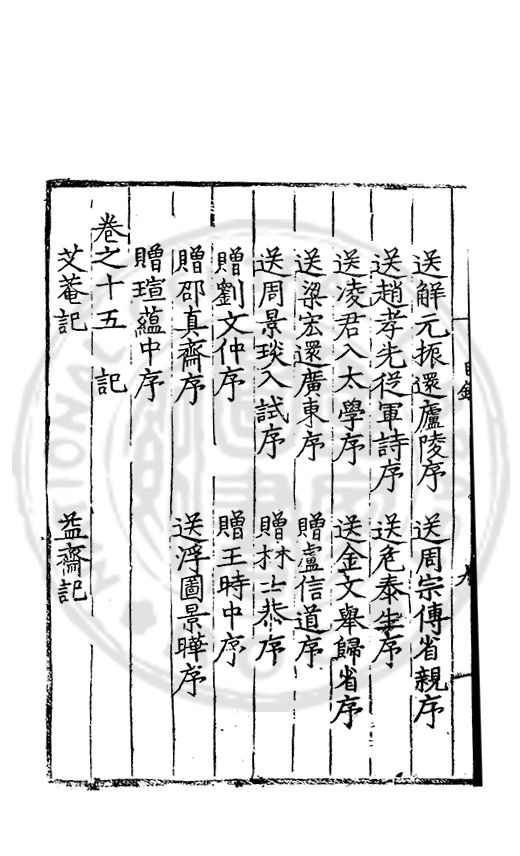 送解元振還廬陵序　送周宗傳省親序
送趙孝先從軍詩序　送危泰生序
送凌君入太學序　送金文舉歸省序
送梁宏還廣東序　贈盧信道序
送周景琰入試序　贈林士恭序
贈劉文仲序　贈王時中序
贈邵真齋序　送浮圖景曄序
贈瑄蘊中序
卷之十五　記
艾菴記　益齋記
目錄